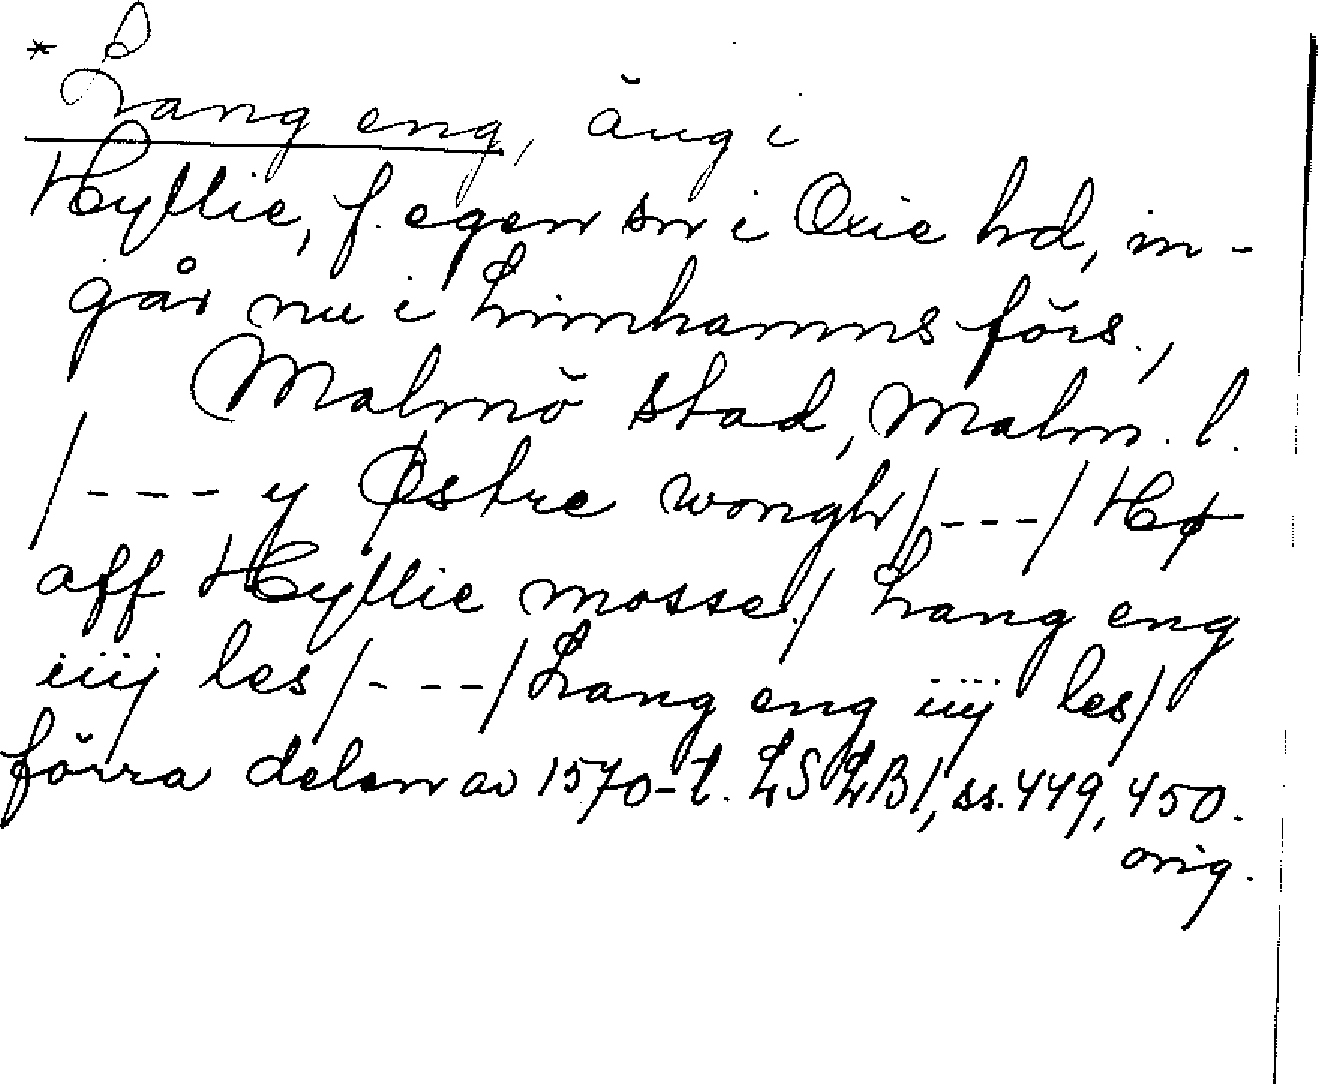 * Lang eng, äng i
Hyllie, f. egen sn i Oxie hd, in-
går nu i Limhamns förs.,
Malmö stad, Malm. l.
/---y Østre wongh/---/Hø
aff Hyllie mosse/ Lang eng
iiij les/---/Lang eng iiij les/
förra delen av 1570-t. LSLB1, ss. 449, 450.
orig.